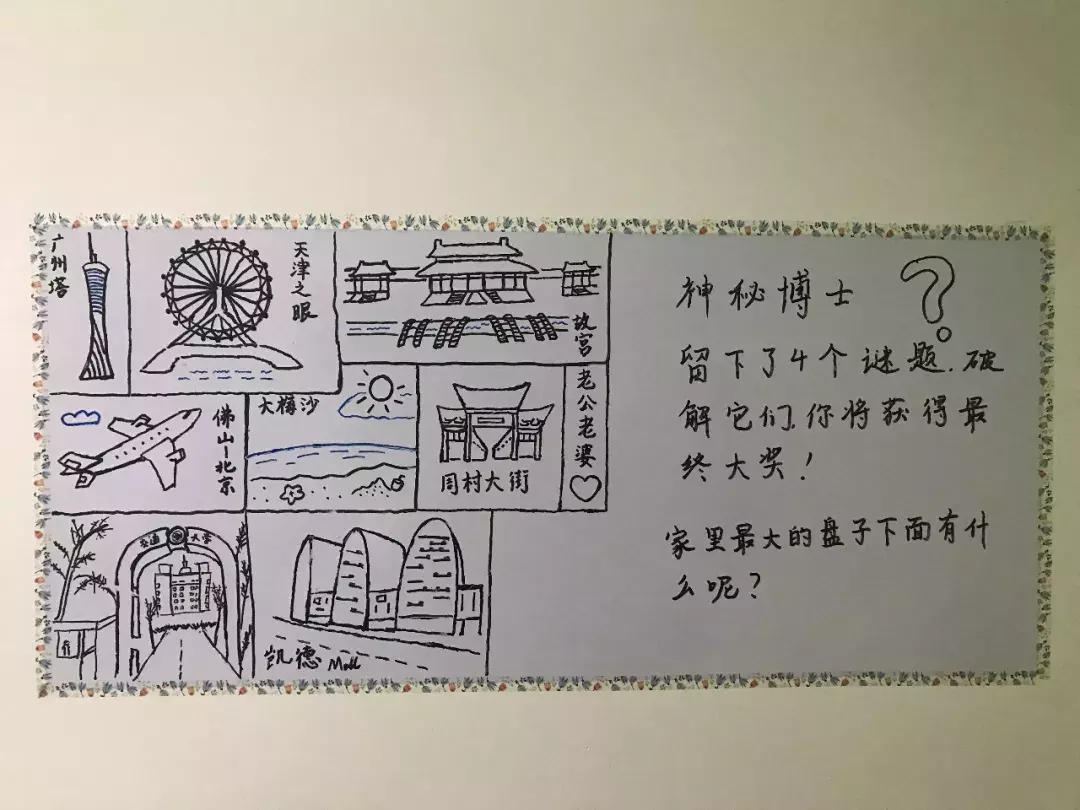 广州塔
天津之眼
故宫
佛山-北京
大梅沙
周村大街
老公老婆
交通大学
凯德Mall
神秘博士
留下了4个谜题.破
解它们.你将获得最
终大奖!
家里最大的盘子下面有什
么呢?